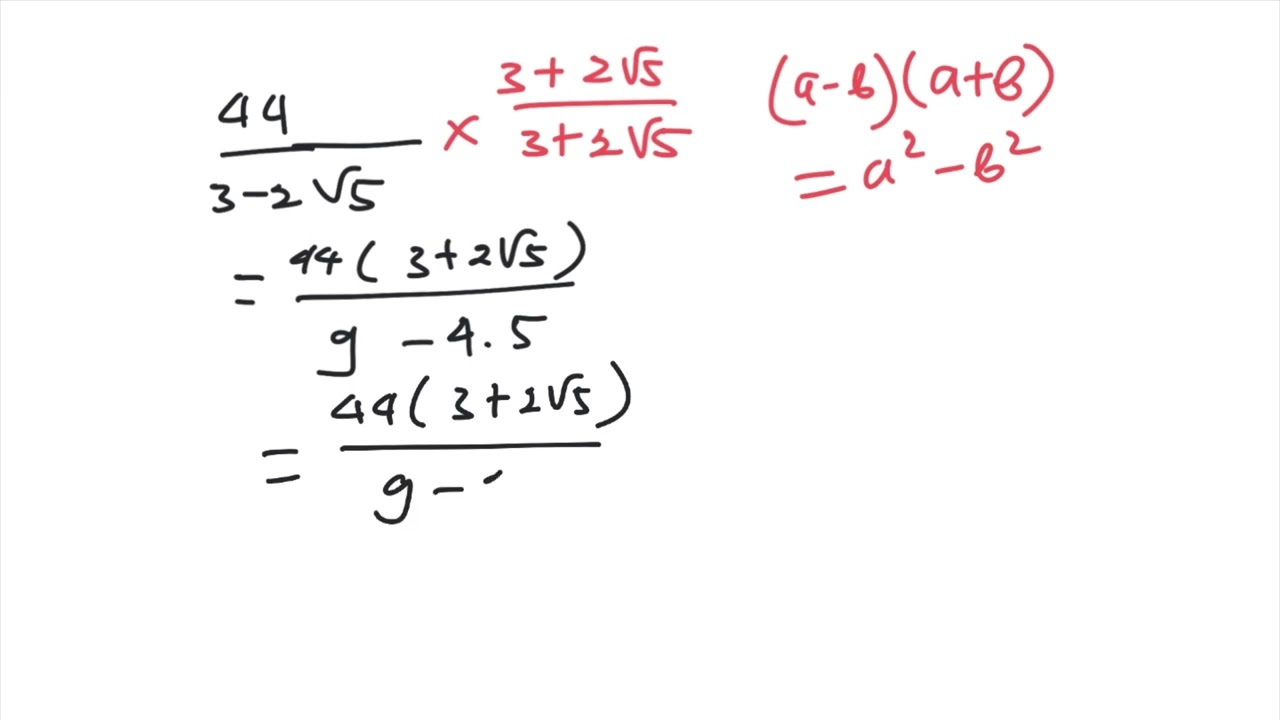 44 / (3-2√5) × (3+2√5) / (3+2√5)
(a-b)(a+b)
= a² - b²
= 44(3+2√5) / (9 - 4.5)
= 44(3+2√5) / (9 -